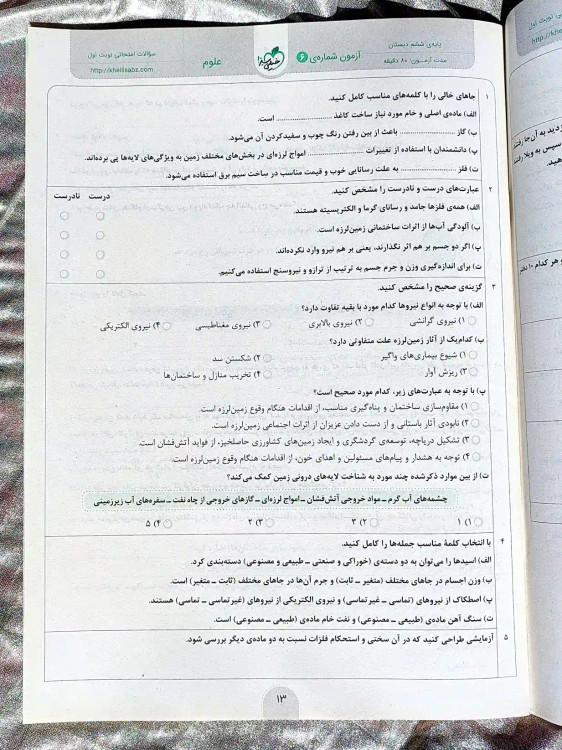 پایه‌ی ششم دبستان
مدت آزمـون: ۸۰ دقیقه
آزمون شماره‌ی ۶
خیلی سبز
علوم
سؤالات امتحانی نوبت اول
http://kheilisabz.com
۱ جاهای خالی را با کلمه‌های مناسب کامل کنید.
الف) ماده‌ی اصلی و خام مورد نیاز ساخت کاغذ .................... است.
ب) گاز .................... باعث از بین رفتن رنگ چوب و سفیدکردن آن می‌شود.
پ) دانشمندان با استفاده از تغییرات .................... امواج لرزه‌ای در بخش‌های مختلف زمین به ویژگی‌های لایه‌ها پی برده‌اند.
ت) فلز .................... به علت رسانایی خوب و قیمت مناسب در ساخت سیم برق استفاده می‌شود.
۲ عبارت‌های درست و نادرست را مشخص کنید. درست نادرست
الف) همه‌ی فلزها جامد و رسانای گرما و الکتریسیته هستند.
ب) آلودگی آب‌ها از اثرات ساختمانی زمین‌لرزه است.
پ) اگر دو جسم بر هم اثر نگذارند، یعنی بر هم نیرو وارد نکرده‌اند.
ت) برای اندازه‌گیری وزن و جرم جسم به ترتیب از ترازو و نیروسنج استفاده می‌کنیم.
۳ گزینه‌ی صحیح را مشخص کنید.
الف) با توجه به انواع نیروها کدام مورد با بقیه تفاوت دارد؟
۱) نیروی گرانشی ۲) نیروی بالابری ۳) نیروی مغناطیسی ۴) نیروی الکتریکی
ب) کدام‌یک از آثار زمین‌لرزه علت متفاوتی دارد؟
۱) شیوع بیماری‌های واگیر ۲) شکستن سد
۳) ریزش آوار ۴) تخریب منازل و ساختمان‌ها
پ) با توجه به عبارت‌های زیر، کدام مورد صحیح است؟
۱) مقاوم‌سازی ساختمان و پناه‌گیری مناسب، از اقدامات هنگام وقوع زمین‌لرزه است.
۲) نابودی آثار باستانی و از دست دادن عزیزان از اثرات اجتماعی زمین‌لرزه است.
۳) تشکیل دریاچه، توسعه‌ی گردشگری و ایجاد زمین‌های کشاورزی حاصلخیز، از فواید آتش‌فشان است.
۴) توجه به هشدار و پیام‌های مسئولین و اهدای خون، از اقدامات هنگام وقوع زمین‌لرزه است.
ت) از بین موارد ذکرشده چند مورد به شناخت لایه‌های درونی زمین کمک می‌کند؟
چشمه‌های آب گرم ـ مواد خروجی آتش‌فشان ـ امواج لرزه‌ای ـ گازهای خروجی از چاه نفت ـ سفره‌های آب زیرزمینی
۱) ۱ ۲) ۳ ۳) ۲ ۴) ۵
۴ با انتخاب کلمهٔ مناسب جمله‌ها را کامل کنید.
الف) اسیدها را می‌توان به دو دسته‌ی (خوراکی و صنعتی ـ طبیعی و مصنوعی) دسته‌بندی کرد.
ب) وزن اجسام در جاهای مختلف (متغیر ـ ثابت) و جرم آن‌ها در جاهای مختلف (ثابت ـ متغیر) است.
پ) اصطکاک از نیروهای (تماسی ـ غیرتماسی) و نیروی الکتریکی از نیروهای (غیرتماسی ـ تماسی) هستند.
ت) سنگ آهن ماده‌ی (طبیعی ـ مصنوعی) و نفت خام ماده‌ی (طبیعی ـ مصنوعی) است.
۵ آزمایشی طراحی کنید که در آن سختی و استحکام فلزات نسبت به دو ماده‌ی دیگر بررسی شود.
۱۳